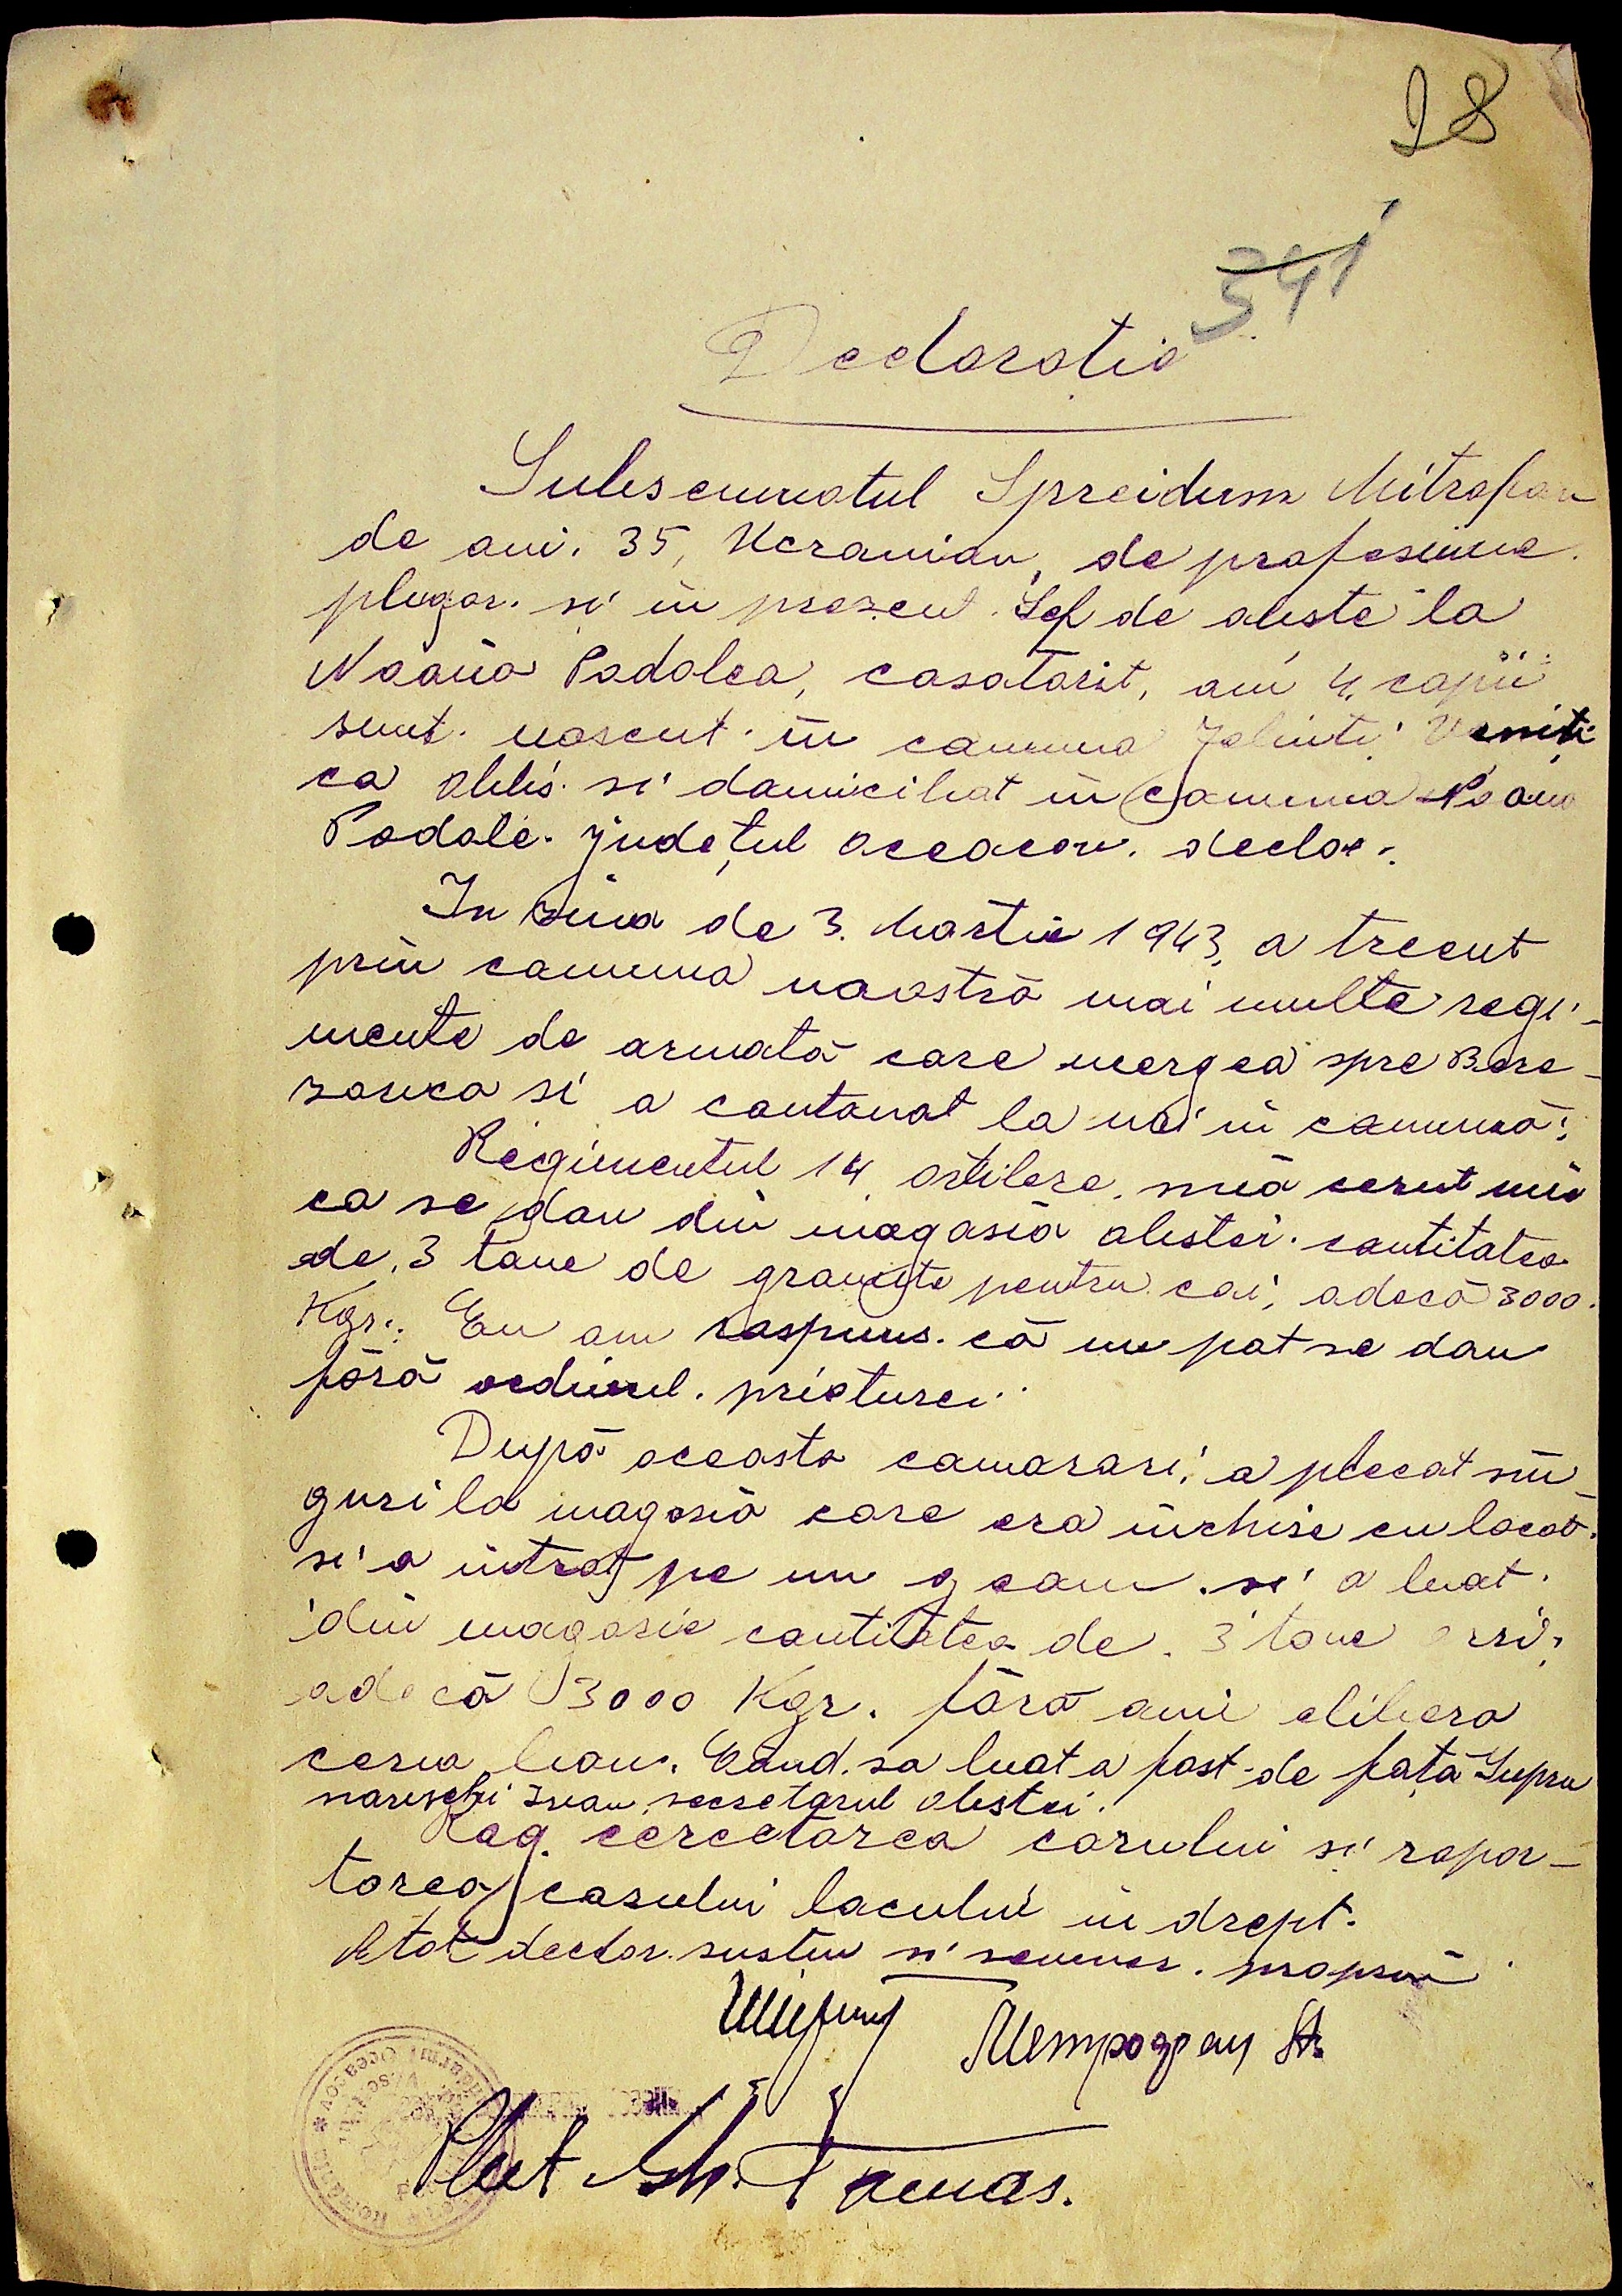 28
341
Declaratie
Subsemnatul Spreidum Mitrofan
de ani. 35, Ucranian, de profesiune.
plugar. si in prezent. Sef de obste la
Noaua Padolca, casatorit, am 4. copii
sunt. nascut. in comuna
ca si domiciliat in comuna Noaua
Podole. județul Oceacow. declar.
In ziua de 3. Martie 1943, a trecut
prin comuna noastră mai multe regi-
mente de armată care mergea spre Bere-
zanca si a cantonat la noi in comună:
Regimentul 14 artilere, mia cerut mie
ca se dau din magasia obstei. cantitatea
de, 3 tone de graunte pentru cai, adecă 3000.
Kgr.. Eu am raspuns. că nu pot se dau
fără ordinul. prieturei.
După aceasta camarazi, a plecat sin-
guri la magasia care era inchise cu lacăt.
si a intrat pe un geam. si a luat.
din magasie cantitatea de. 3 tone orz,
adecă 3000 Kgr. fără ami elibera
cerva bon. Când. sa luat a fost de față Supru
narevschi Ivan, secretarul obstei.
Rog. cercetarea cazului si rapor-
tarea casului locului in drept.
Atât declar. sustin si semnez. propriu
Метрофан
Plut Gh. Tanas.